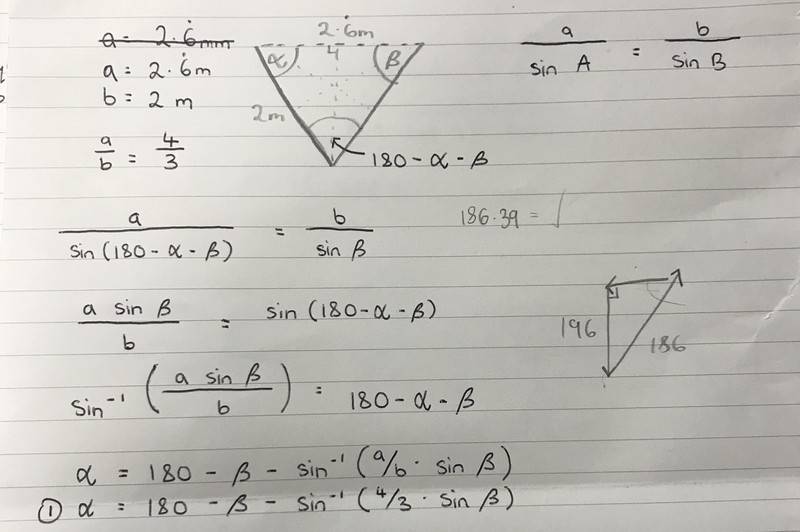 a = 2.6̇mm
a = 2.6̇m
b = 2 m
a/b = 4/3
2.6̇m
α
4
β
2m
180 - α - β
a/sin A = b/sin B
a/sin (180 - α - β) = b/sin β
186.39 = √
a sin β/b = sin (180 - α - β)
196
186
sin⁻¹ (a sin β/b) = 180 - α - β
α = 180 - β - sin⁻¹ (a/b · sin β)
① α = 180 - β - sin⁻¹ (4/3 · sin β)